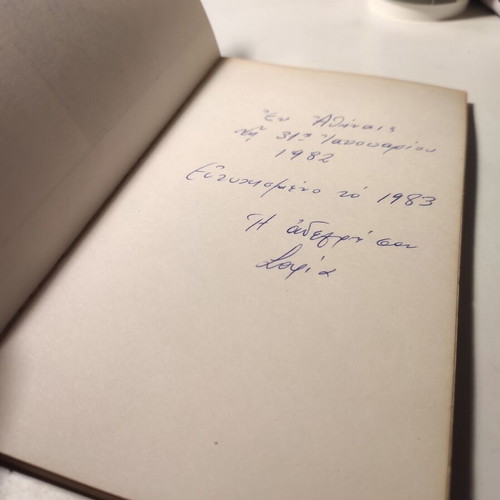 Ἐν Ἀθήναις
τῇ 31ῃ Ἰανουαρίου
1982
Εὐτυχισμένο τό 1983
Ἡ ἀδελφή σου
Σοφία